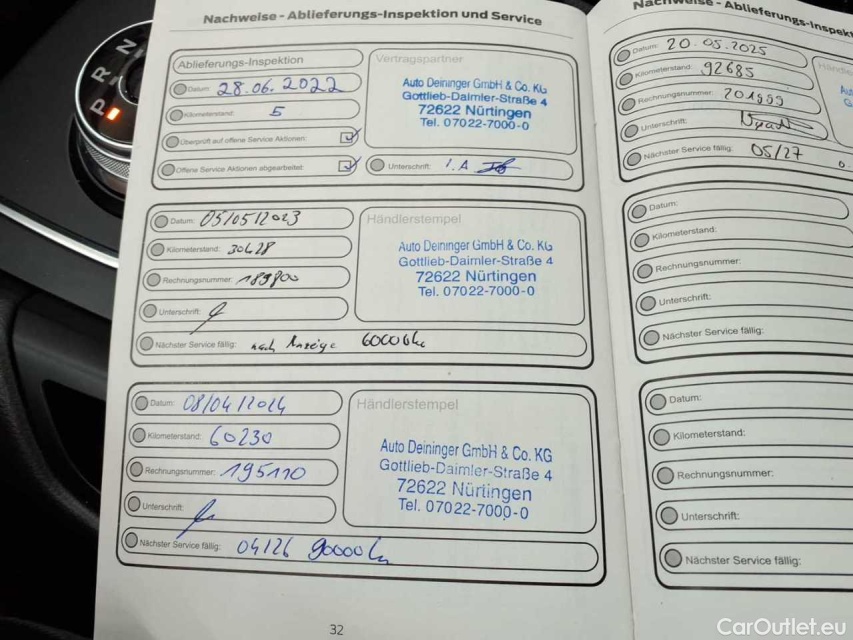 P
R
N
Nachweise - Ablieferungs-Inspektion und Service
Ablieferungs-Inspektion
Datum: 28.06.2022
Kilometerstand: 5
Überprüft auf offene Service Aktionen:
Offene Service Aktionen abgearbeitet:
Vertragspartner
Auto Deininger GmbH & Co. KG
Gottlieb-Daimler-Straße 4
72622 Nürtingen
Tel. 07022-7000-0
Unterschrift: I.A
Datum: 05/05/2023
Kilometerstand: 30428
Rechnungsnummer: 189800
Unterschrift:
Nächster Service fällig: nach Anzeige 60000 km
Händlerstempel
Auto Deininger GmbH & Co. KG
Gottlieb-Daimler-Straße 4
72622 Nürtingen
Tel. 07022-7000-0
Datum: 08/04/2024
Kilometerstand: 60230
Rechnungsnummer: 195110
Unterschrift:
Nächster Service fällig: 04/26 90000 km
Händlerstempel
Auto Deininger GmbH & Co. KG
Gottlieb-Daimler-Straße 4
72622 Nürtingen
Tel. 07022-7000-0
32
Nachweise - Ablieferungs-Inspekt
Datum: 20.05.2025
Kilometerstand: 92685
Rechnungsnummer: 201999
Unterschrift:
Nächster Service fällig: 05/27
Datum:
Kilometerstand:
Rechnungsnummer:
Unterschrift:
Nächster Service fällig:
Datum:
Kilometerstand:
Rechnungsnummer:
Unterschrift:
Nächster Service fällig:
CarOutlet.eu